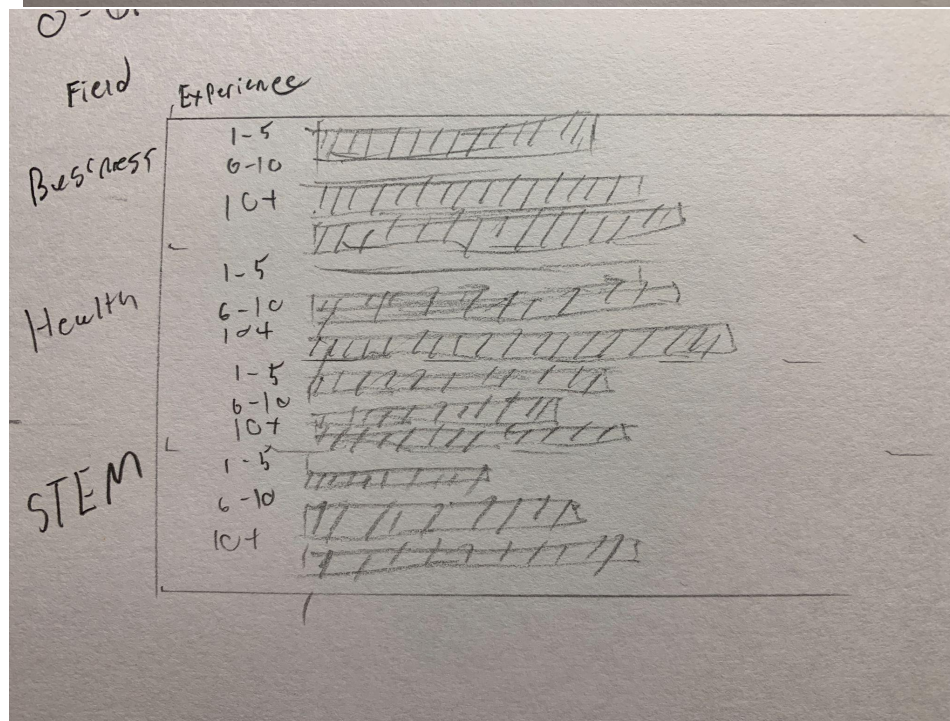 Field Experience
1-5
Business 6-10
10+
1-5
Health 6-10
10+
1-5
6-10
10+
1-5
STEM 6-10
10+